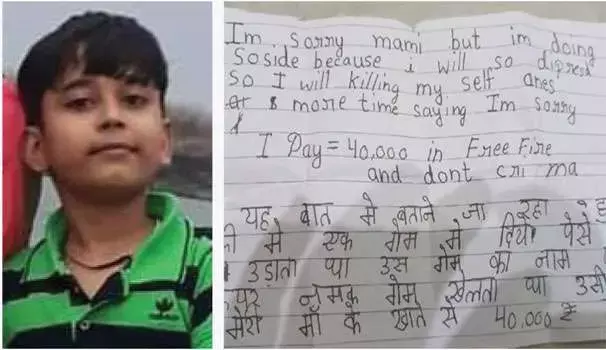 Im sorry mami but im doing
Soside because i will so dipresd
So I will killing my self anes
more time saying Im sorry
I Pay = 40,000 in Free Fire
and dont cri ma
यह बात मे बताने जा रहा
मे एक गेम मे दिया पैसे
उड़ाता था उस गेम का नाम
नामक गेम खेलता था उसी
मेरी माँ के खाते से 40,000 ₹